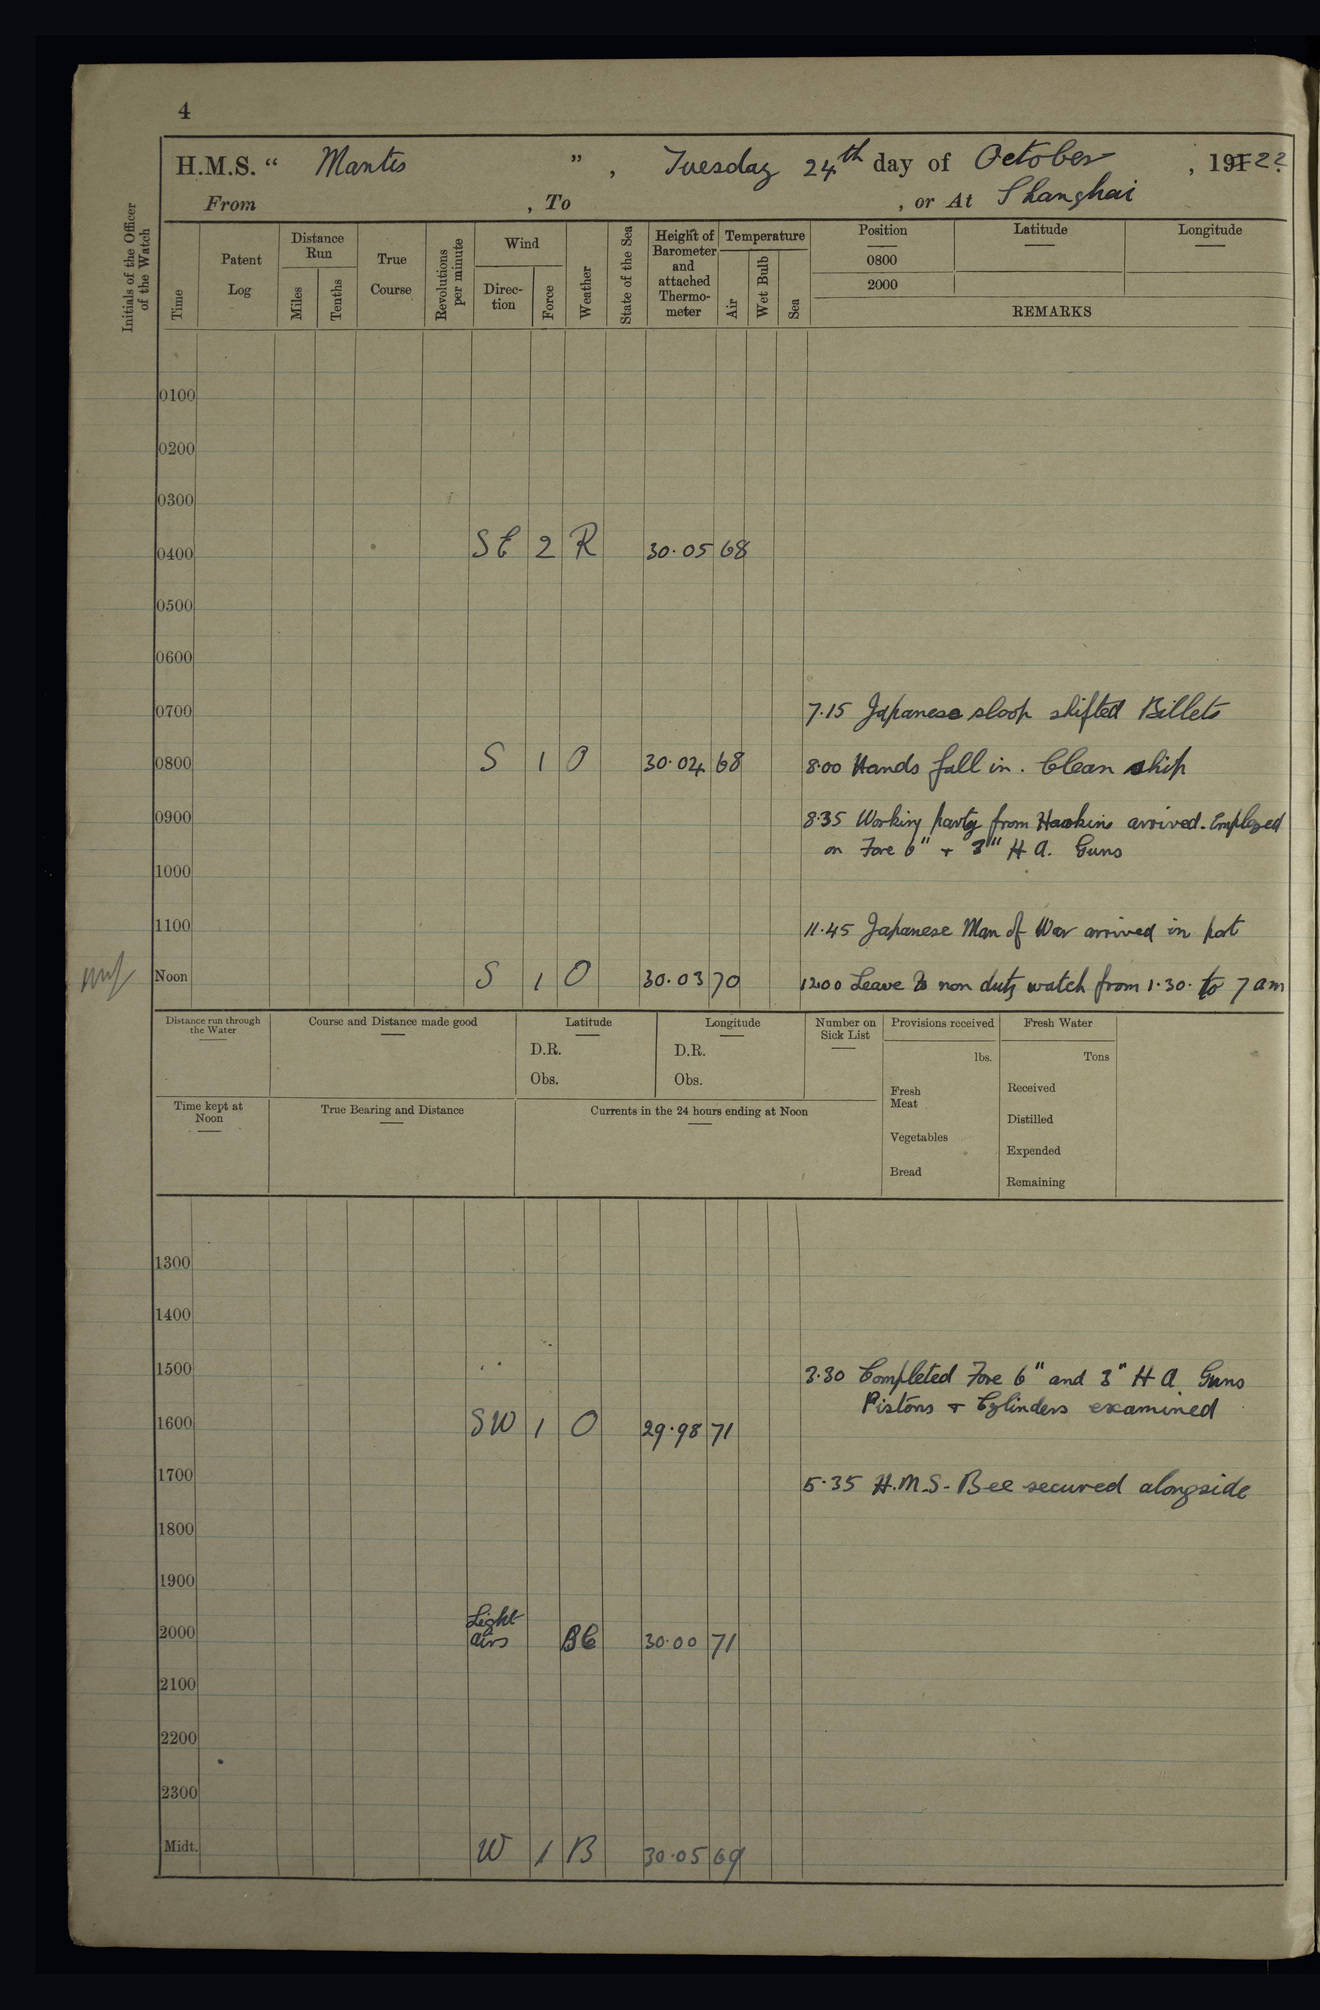 4
H.M.S. “ Mantis ”, Tuesday 24th day of October, 1922
From , To , or At Shanghai
Initials of the Officer of the Watch
Time
Patent Log
Distance Run
Miles
Tenths
True Course
Revolutions per minute
Wind
Direc-tion
Force
Weather
State of the Sea
Height of Barometer and attached Thermo-meter
Temperature
Air
Wet Bulb
Sea
Position
Latitude
Longitude
0800
2000
REMARKS
0100
0200
0300
0400 SE 2 R 30.05 68
0500
0600
0700 7.15 Japanese sloop shifted Billets
0800 S 1 O 30.04 68 8.00 Hands fall in. Clean ship
0900 8.35 Working party from Hawkins arrived. Employed
on Fore 6" + 3" H A. Guns
1000
1100 11.45 Japanese Man of War arrived in port
Noon S 1 O 30.03 70 12.00 Leave to non duty watch from 1.30. to 7 am
Distance run through the Water
Course and Distance made good
Latitude
D.R.
Obs.
Longitude
D.R.
Obs.
Number on Sick List
Provisions received
lbs.
Fresh Meat
Vegetables
Bread
Fresh Water
Tons
Received
Distilled
Expended
Remaining
Time kept at Noon
True Bearing and Distance
Currents in the 24 hours ending at Noon
1300
1400
1500 3.30 Completed Fore 6" and 3" H A Guns
Pistons + Cylinders examined
1600 SW 1 O 29.98 71
1700 5.35 H.M.S. Bee secured alongside
1800
1900
2000 Light airs BC 30.00 71
2100
2200
2300
Midt. W 1 B 30.05 69